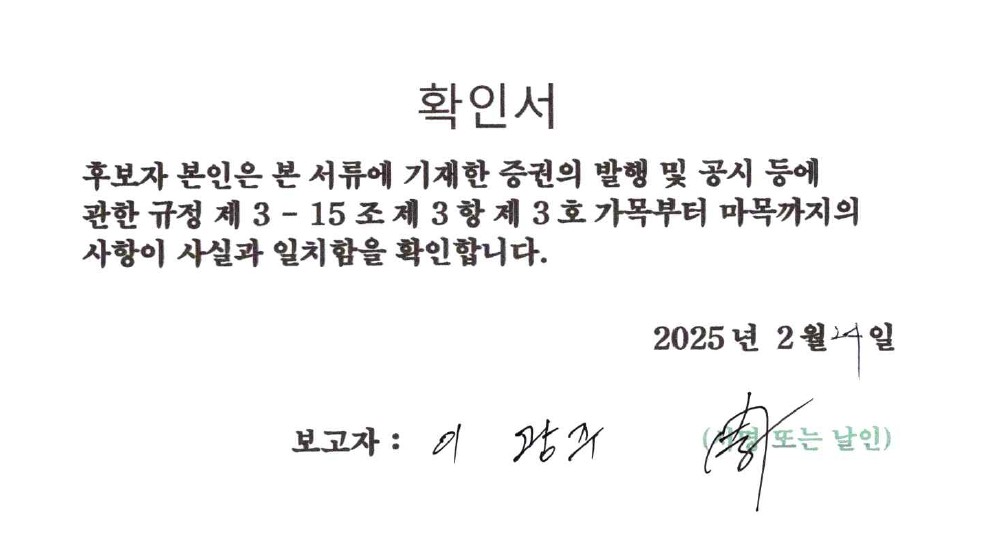 확인서
후보자 본인은 본 서류에 기재한 증권의 발행 및 공시 등에
관한 규정 제 3 - 15 조 제 3 항 제 3 호 가목부터 마목까지의
사항이 사실과 일치함을 확인합니다.
2025 년 2 월 24 일
보고자 : 이 광주 또는 날인)